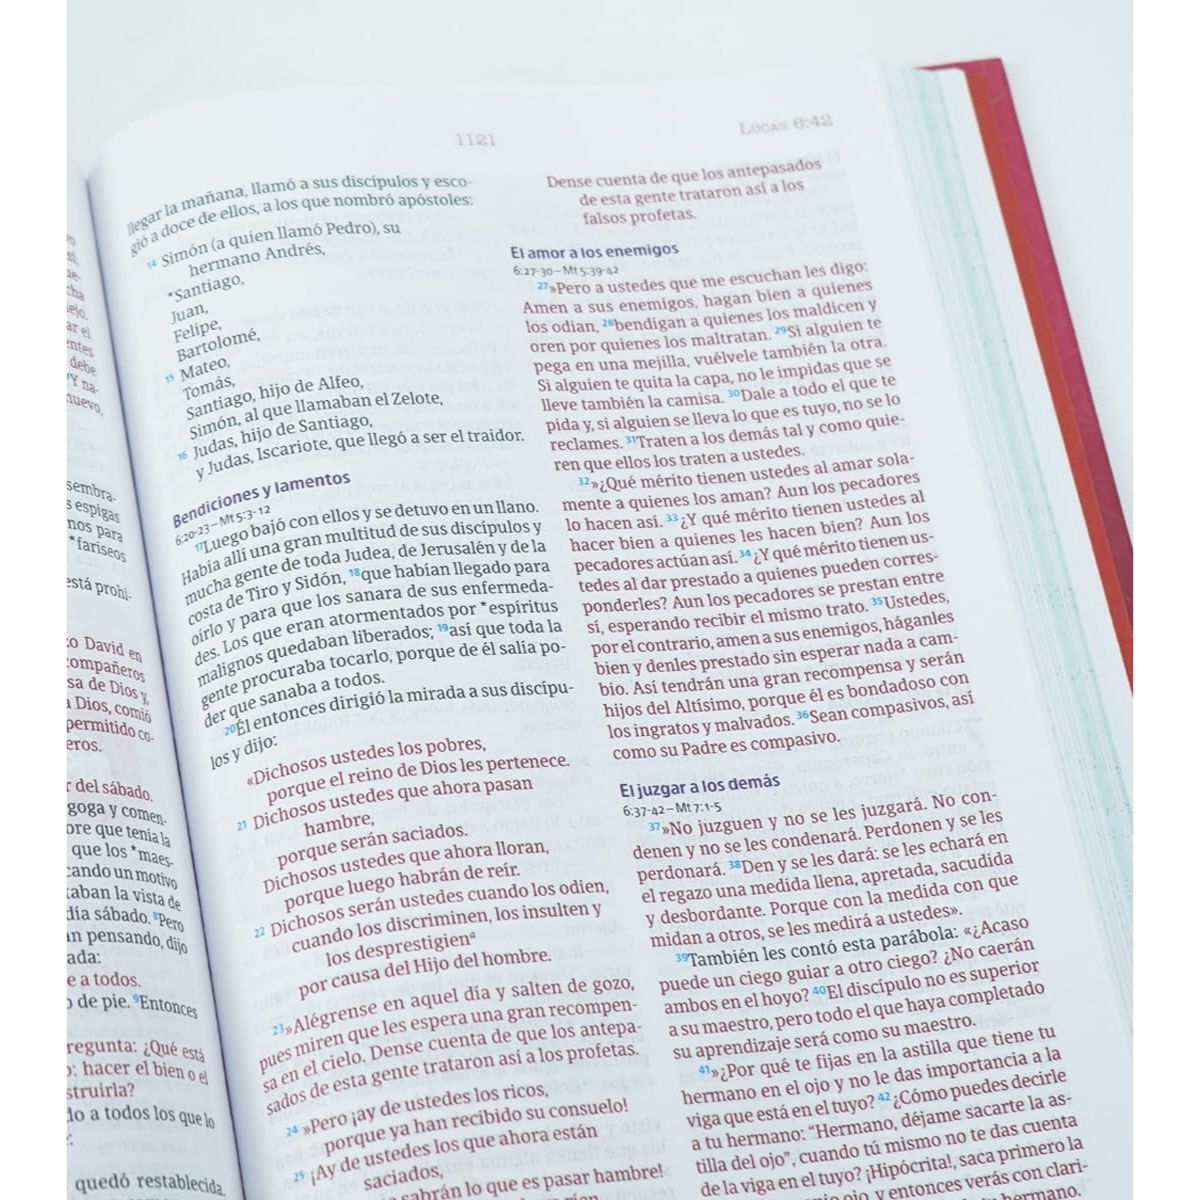 1121
Lucas 6:42
sembra-
s espigas
nos para
*fariseos
está prohi-
o David en
compañeros
sa de Dios y,
a Dios, comió
permitido co-
eros.
r del sábado.
goga y comen-
bre que tenía la
que los *maes-
cando un motivo
taban la vista de
día sábado. 8Pero
an pensando, dijo
ada:
e a todos.
o de pie. 9Entonces
regunta: ¿Qué está
o: hacer el bien o el
struirla?
do a todos los que lo
quedó restablecida.
llegar la mañana, llamó a sus discípulos y esco-
gió a doce de ellos, a los que nombró apóstoles:
14 Simón (a quien llamó Pedro), su
hermano Andrés,
*Santiago,
Juan,
Felipe,
Bartolomé,
15 Mateo,
Tomás,
Santiago, hijo de Alfeo,
Simón, al que llamaban el Zelote,
16 Judas, hijo de Santiago,
y Judas, Iscariote, que llegó a ser el traidor.
Bendiciones y lamentos
6:20-23 – Mt 5:3-12
17Luego bajó con ellos y se detuvo en un llano.
Había allí una gran multitud de sus discípulos y
mucha gente de toda Judea, de Jerusalén y de la
costa de Tiro y Sidón, 18que habían llegado para
oírlo y para que los sanara de sus enfermeda-
des. Los que eran atormentados por *espíritus
malignos quedaban liberados; 19así que toda la
gente procuraba tocarlo, porque de él salía po-
der que sanaba a todos.
20Él entonces dirigió la mirada a sus discípu-
los y dijo:
«Dichosos ustedes los pobres,
porque el reino de Dios les pertenece.
21 Dichosos ustedes que ahora pasan
hambre,
porque serán saciados.
Dichosos ustedes que ahora lloran,
porque luego habrán de reír.
22 Dichosos serán ustedes cuando los odien,
cuando los discriminen, los insulten y
los desprestigienª
por causa del Hijo del hombre.
23»Alégrense en aquel día y salten de gozo,
pues miren que les espera una gran recompen-
sa en el cielo. Dense cuenta de que los antepa-
sados de esta gente trataron así a los profetas.
24 »Pero ¡ay de ustedes los ricos,
porque ya han recibido su consuelo!
25 ¡Ay de ustedes los que ahora están
saciados,
sabrán lo que es pasar hambre!
Dense cuenta de que los antepasados
de esta gente trataron así a los
falsos profetas.
El amor a los enemigos
6:27-30 – Mt 5:39-42
27»Pero a ustedes que me escuchan les digo:
Amen a sus enemigos, hagan bien a quienes
los odian, 28bendigan a quienes los maldicen y
oren por quienes los maltratan. 29Si alguien te
pega en una mejilla, vuélvele también la otra.
Si alguien te quita la capa, no le impidas que se
lleve también la camisa. 30Dale a todo el que te
pida y, si alguien se lleva lo que es tuyo, no se lo
reclames. 31Traten a los demás tal y como quie-
ren que ellos los traten a ustedes.
32»¿Qué mérito tienen ustedes al amar sola-
mente a quienes los aman? Aun los pecadores
lo hacen así. 33¿Y qué mérito tienen ustedes al
hacer bien a quienes les hacen bien? Aun los
pecadores actúan así. 34¿Y qué mérito tienen us-
tedes al dar prestado a quienes pueden corres-
ponderles? Aun los pecadores se prestan entre
sí, esperando recibir el mismo trato. 35Ustedes,
por el contrario, amen a sus enemigos, háganles
bien y denles prestado sin esperar nada a cam-
bio. Así tendrán una gran recompensa y serán
hijos del Altísimo, porque él es bondadoso con
los ingratos y malvados. 36Sean compasivos, así
como su Padre es compasivo.
El juzgar a los demás
6:37-42 – Mt 7:1-5
37»No juzguen y no se les juzgará. No con-
denen y no se les condenará. Perdonen y se les
perdonará. 38Den y se les dará: se les echará en
el regazo una medida llena, apretada, sacudida
y desbordante. Porque con la medida con que
midan a otros, se les medirá a ustedes».
39También les contó esta parábola: «¿Acaso
puede un ciego guiar a otro ciego? ¿No caerán
ambos en el hoyo? 40El discípulo no es superior
a su maestro, pero todo el que haya completado
su aprendizaje será como su maestro.
41»¿Por qué te fijas en la astilla que tiene tu
hermano en el ojo y no le das importancia a la
viga que está en el tuyo? 42¿Cómo puedes decirle
a tu hermano: "Hermano, déjame sacarte la as-
tilla del ojo", cuando tú mismo no te das cuenta
de la viga en el tuyo? ¡Hipócrita!, saca primero la
ojo, y entonces verás con clari-
hermano.